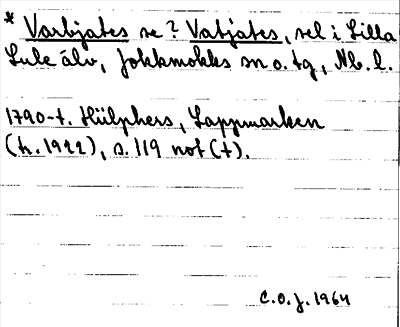 * Varbjates se ? Vatjates, sel i Lilla
Lule älv, Jokkmokks sn o. tg, Nb. l.
1790-t. Hülphers, Lappmarken
(h. 1922), s. 119 not (t).
C.O.J. 1964